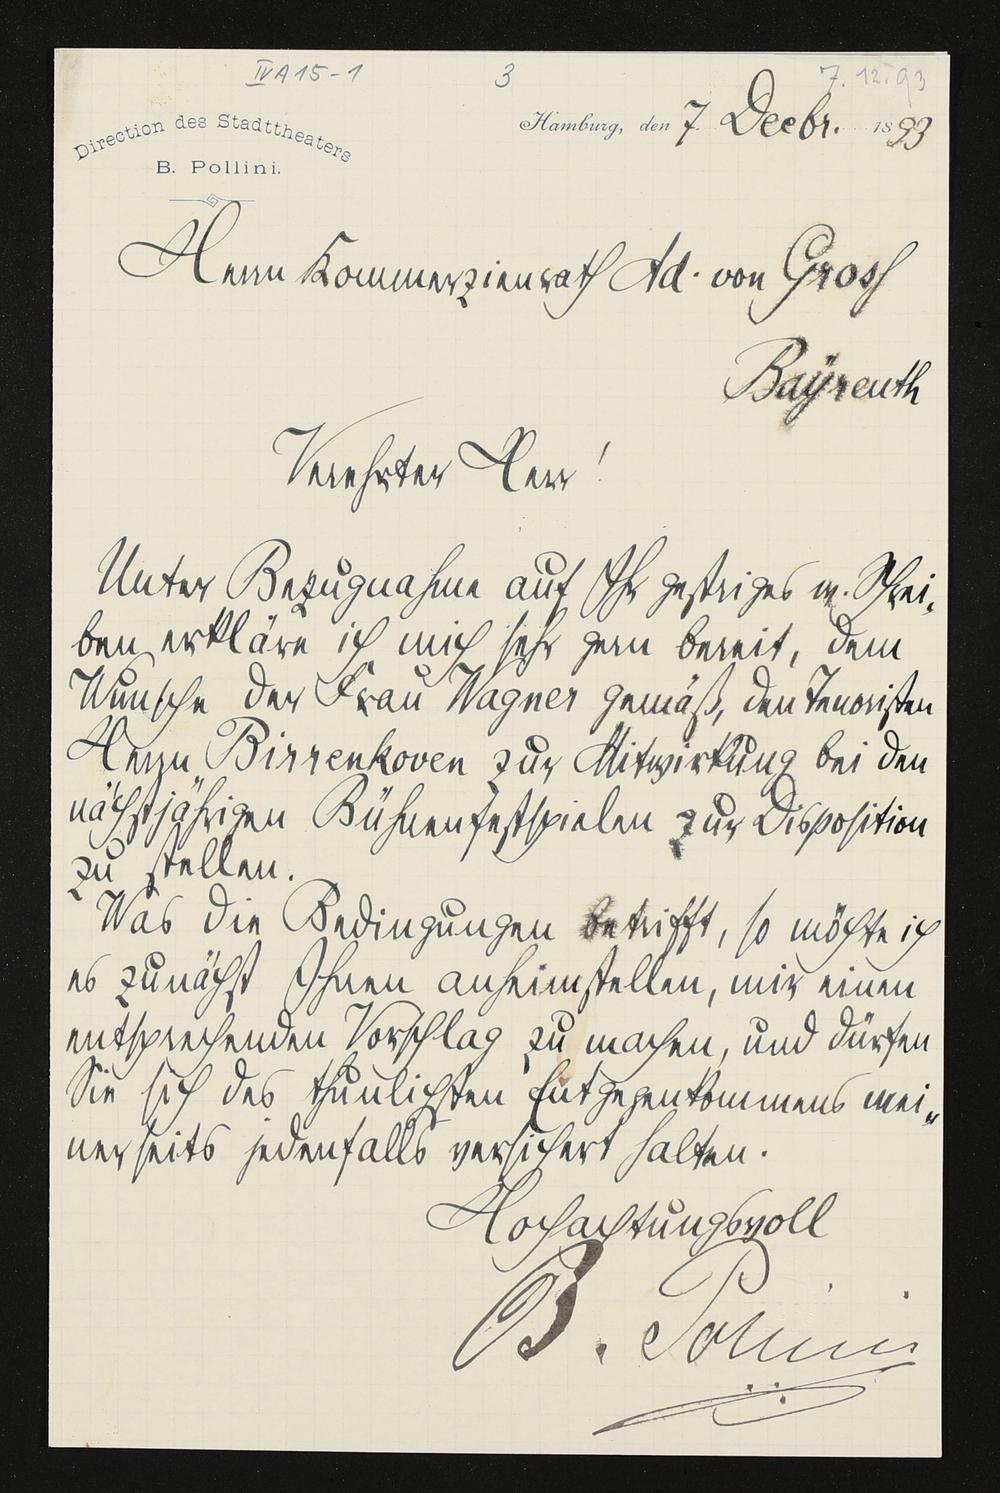 IV A 15-1
3
7. 12. 93
Direction des Stadttheaters
B. Pollini.
Hamburg, den 7. Decbr. 1893
Herrn Kommerzienrath Ad. von Gross
Bayreuth
Verehrter Herr!
Unter Bezugnahme auf Ihr gestriges w. Schrei-
ben erkläre ich mich sehr gern bereit, dem
Wunsche der Frau Wagner gemäß, den Tenoristen
Herrn Birrenkoven zur Mitwirkung bei den
nächstjährigen Bühnenfestspielen zur Disposition
zu stellen.
Was die Bedingungen betrifft, so möchte ich
es zunächst Ihnen anheimstellen, mir einen
entsprechenden Vorschlag zu machen, und dürfen
Sie sich des thunlichsten Entgegenkommens mei-
nerseits jedenfalls versichert halten.
Hochachtungsvoll
B. Pollini